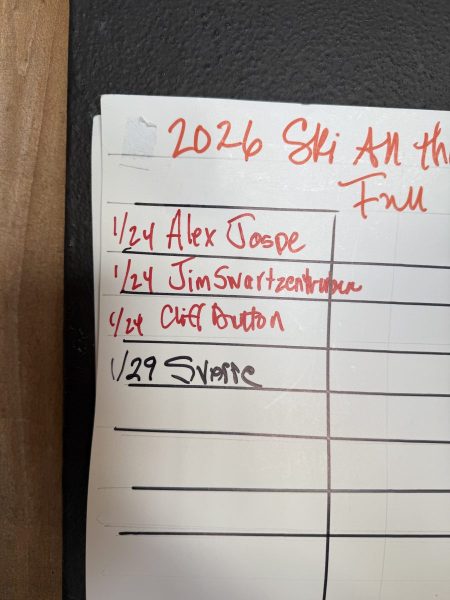 2026 Ski All th
Full
1/24 Alex Jospe
1/24 Jim Swartzentruber
1/24 Cliff Button
1/29 Sverre